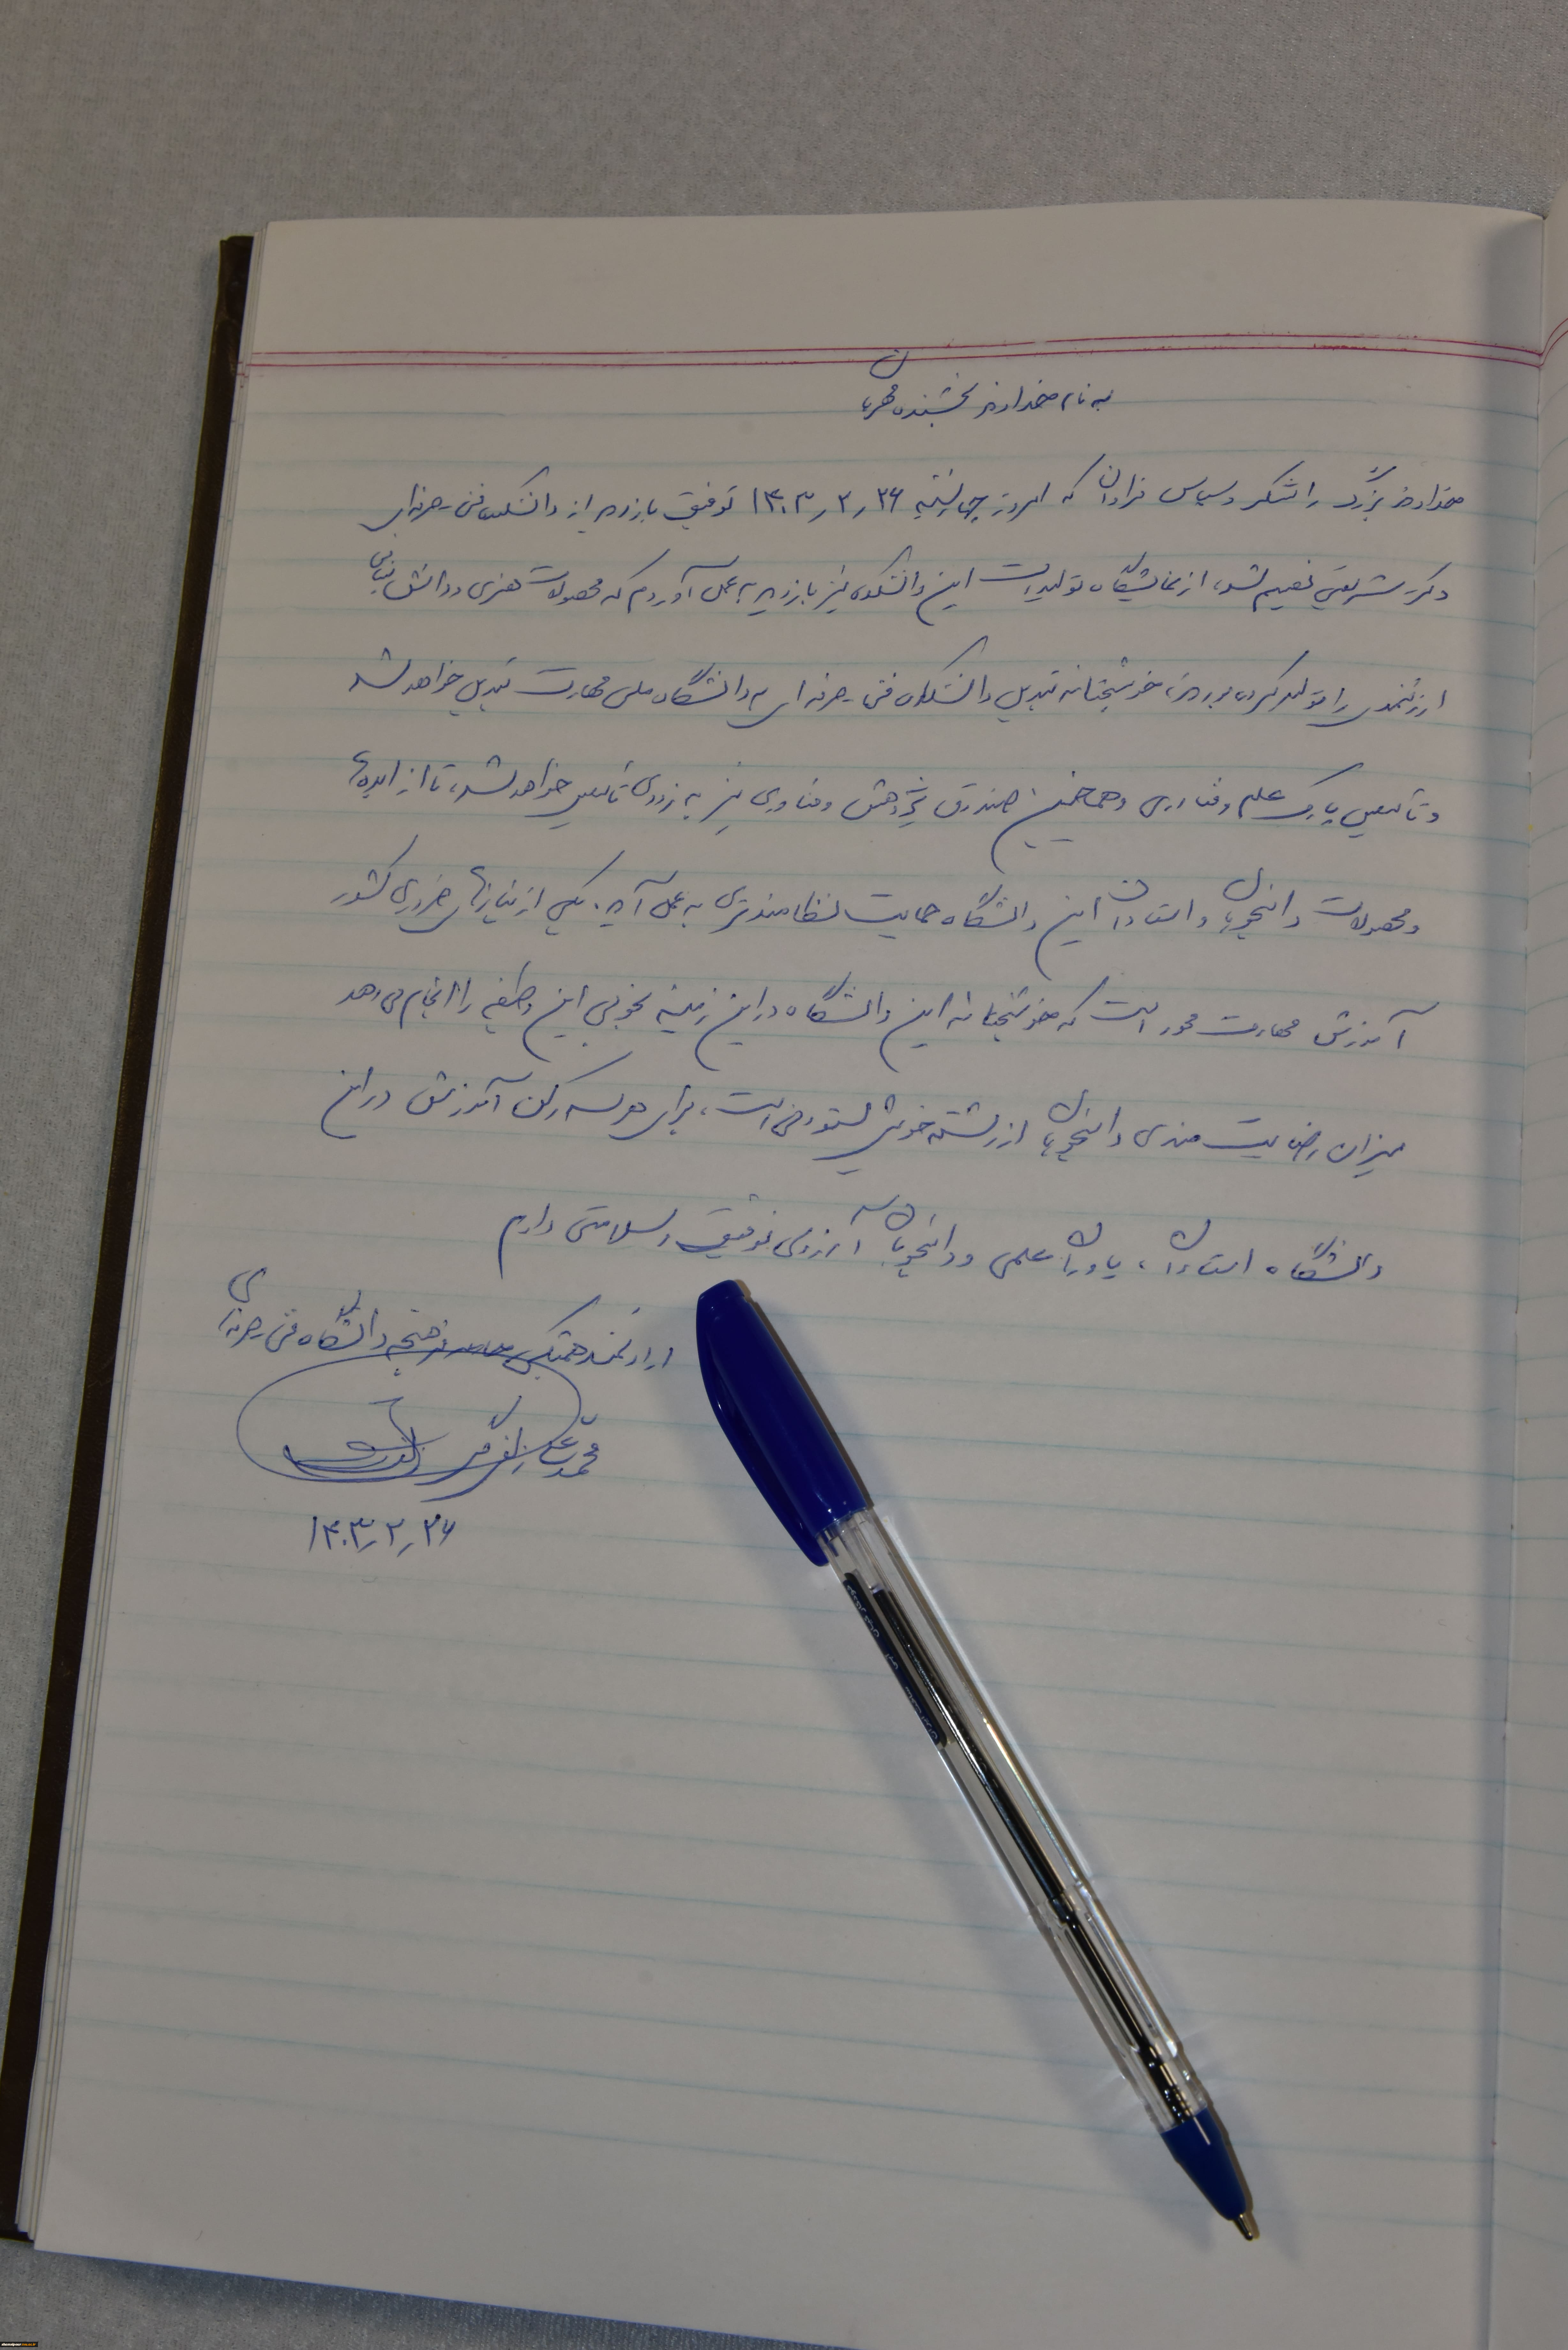 به نام خداوند بخشنده مهربان
خداوند بزرگ را شکر و سپاس فراوان که امروز چهارشنبه ۱۴۰۳٫۲٫۲۶ توفیق بازدید از دانشکده فنی حرفه‌ای
دکتر شریعتی نصیبم شد، از نمایشگاه تولیدات این دانشکده نیز بازدید به عمل آوردم که محصولات هنری و دانش بنیانی
ارزشمندی را تولید کرده بودند، خوشبختانه تبدیل دانشکده فنی حرفه‌ای به دانشگاه ملی مهارت تبدیل خواهد شد
و تاسیس پارک علم و فناوری و همچنین صندوق پژوهش و فناوری نیز به زودی تاسیس خواهد شد، تا از ایده‌ها
و محصولات دانشجویان و استادان این دانشگاه حمایت نظامندتری به عمل آید. یکی از نیازهای ضروری کشور
آموزش مهارت محور است که خوشبختانه این دانشگاه در این زمینه بخوبی این وظیفه را انجام می‌دهد
میزان رضایت مندی دانشجویان از رشته خویش ستودنی است، برای هر سه رکن آموزش در این
دانشگاه استادان، یاوران علمی و دانشجویان آرزوی توفیق و سلامتی دارم
ارادتمند همیشگی فرهیختگان دانشگاه فنی حرفه‌ای
محمدعلی زلفی گل
۱۴۰۳٫۲٫۲۶